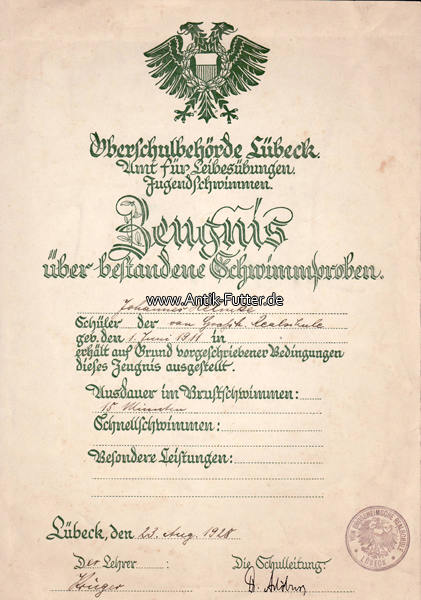 Oberschulbehörde Lübeck.
Amt für Leibesübungen.
Jugendschwimmen.
Zeugnis
über bestandene Schwimmproben.
Johannes
www.Antik-Futter.de
Schüler der von Großh. Realschule
geb. den 1. Juni 1911 in
erhält auf Grund vorgeschriebener Bedingungen
dieses Zeugnis ausgestellt.
Ausdauer im Brustschwimmen:
15 Minuten
Schnellschwimmen:
Besondere Leistungen:
Lübeck, den 23. Aug. 1928
VON GROSSHEIMSCHE REALSCHULE
LÜBECK
Der Lehrer: Die Schulleitung:
Krüger